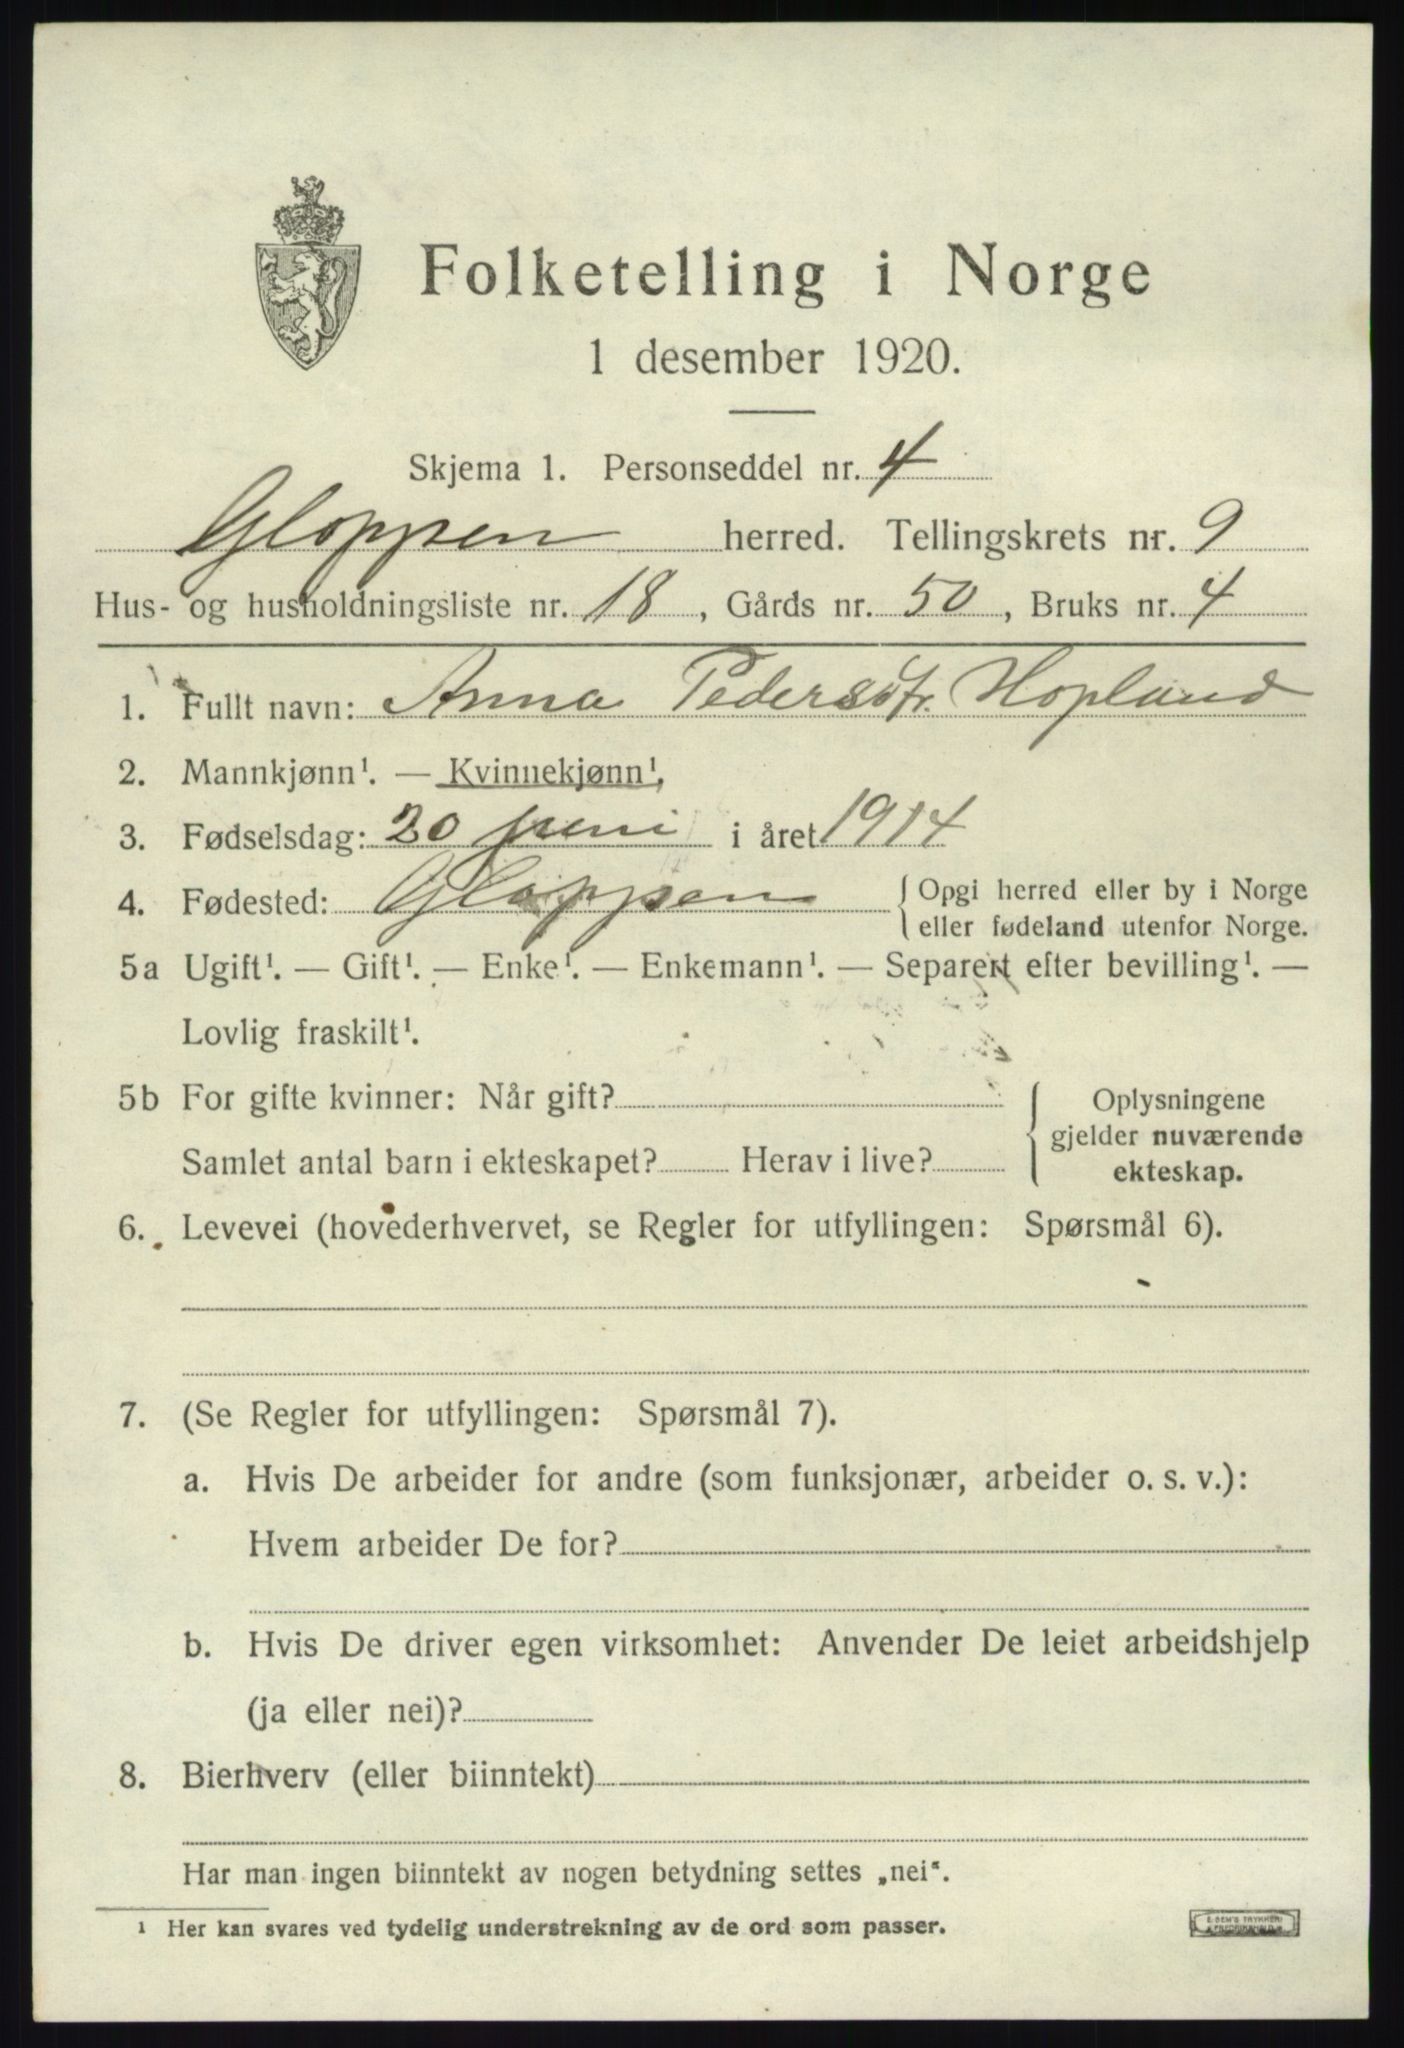 Folketelling i Norge
1 desember 1920.
Skjema 1. Personseddel nr. 4
Gloppen herred. Tellingskrets nr. 9
Hus- og husholdningsliste nr. 18, Gårds nr. 50, Bruks nr. 4
1. Fullt navn: Anna Pedersdtr. Hopland
2. Mannkjønn¹. — Kvinnekjønn¹.
3. Fødselsdag: 20 juni i året 1914
4. Fødested: Gloppen { Opgi herred eller by i Norge
eller fødeland utenfor Norge.
5a Ugift¹. — Gift¹. — Enke¹. — Enkemann¹. — Separert efter bevilling¹. —
Lovlig fraskilt¹.
5b For gifte kvinner: Når gift?
Samlet antal barn i ekteskapet? Herav i live?
{ Oplysningene
gjelder nuværende
ekteskap.
6. Levevei (hovederhvervet, se Regler for utfyllingen: Spørsmål 6).
7. (Se Regler for utfyllingen: Spørsmål 7).
a. Hvis De arbeider for andre (som funksjonær, arbeider o. s. v.):
Hvem arbeider De for?
b. Hvis De driver egen virksomhet: Anvender De leiet arbeidshjelp
(ja eller nei)?
8. Bierhverv (eller biinntekt)
Har man ingen biinntekt av nogen betydning settes „nei“.
¹ Her kan svares ved tydelig understrekning av de ord som passer.